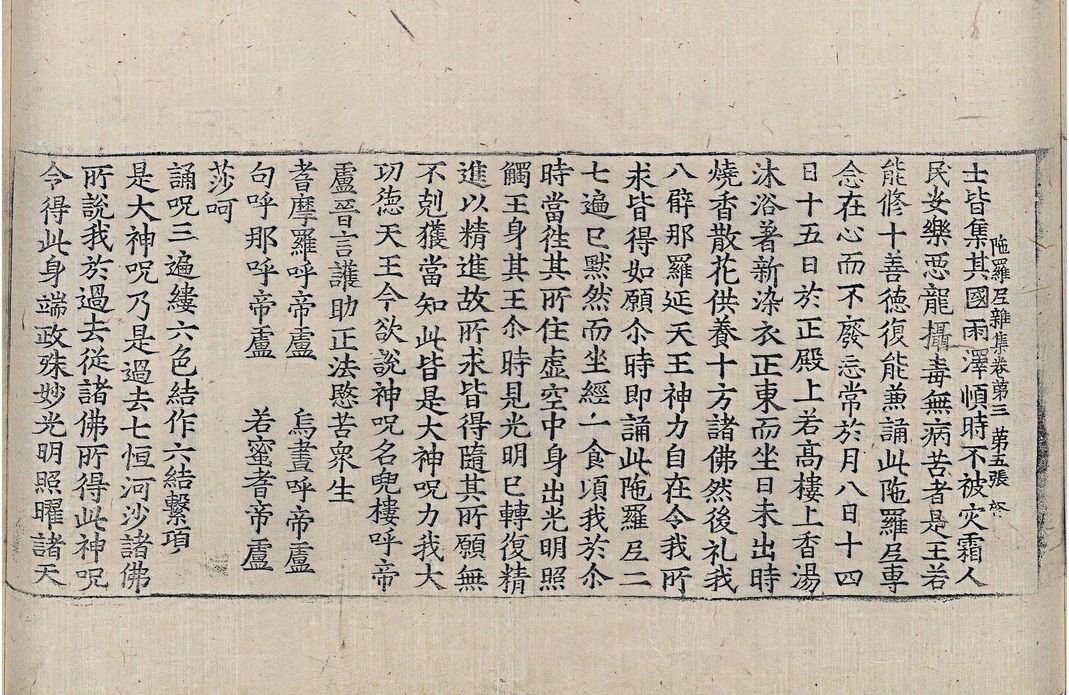 士皆集其國雨澤順時不被灾霜人
陁羅𡰱雜集卷第三 第五張
民安樂惡龍攝毒無病苦者是王若
能修十善德復能兼誦此陁羅𡰱專
念在心而不廢忘常於月八日十四
日十五日於正殿上若高樓上香湯
沐浴著新染衣正東而坐日未出時
燒香散花供養十方諸佛然後礼我
八臂那羅延天王神力自在令我所
求皆得如願尒時即誦此陁羅𡰱二
七遍已默然而坐經一食頃我於尒
時當往其所住虛空中身出光明照
觸王身其王尒時見光明已轉復精
進以精進故所求皆得隨其所願無
不剋獲當知此皆是大神呪力我大
功徳天王今欲說神呪名兜樓呼帝
盧晉言護助正法愍苦衆生
耆摩羅呼帝盧　烏晝呼帝盧
句呼那呼帝盧　若蜜耆帝盧
莎呵
誦呪三遍縷六色結作六結繫項
是大神呪乃是過去七恒河沙諸佛
所說我於過去從諸佛所得此神呪
令得此身端政殊妙光明照曜諸天